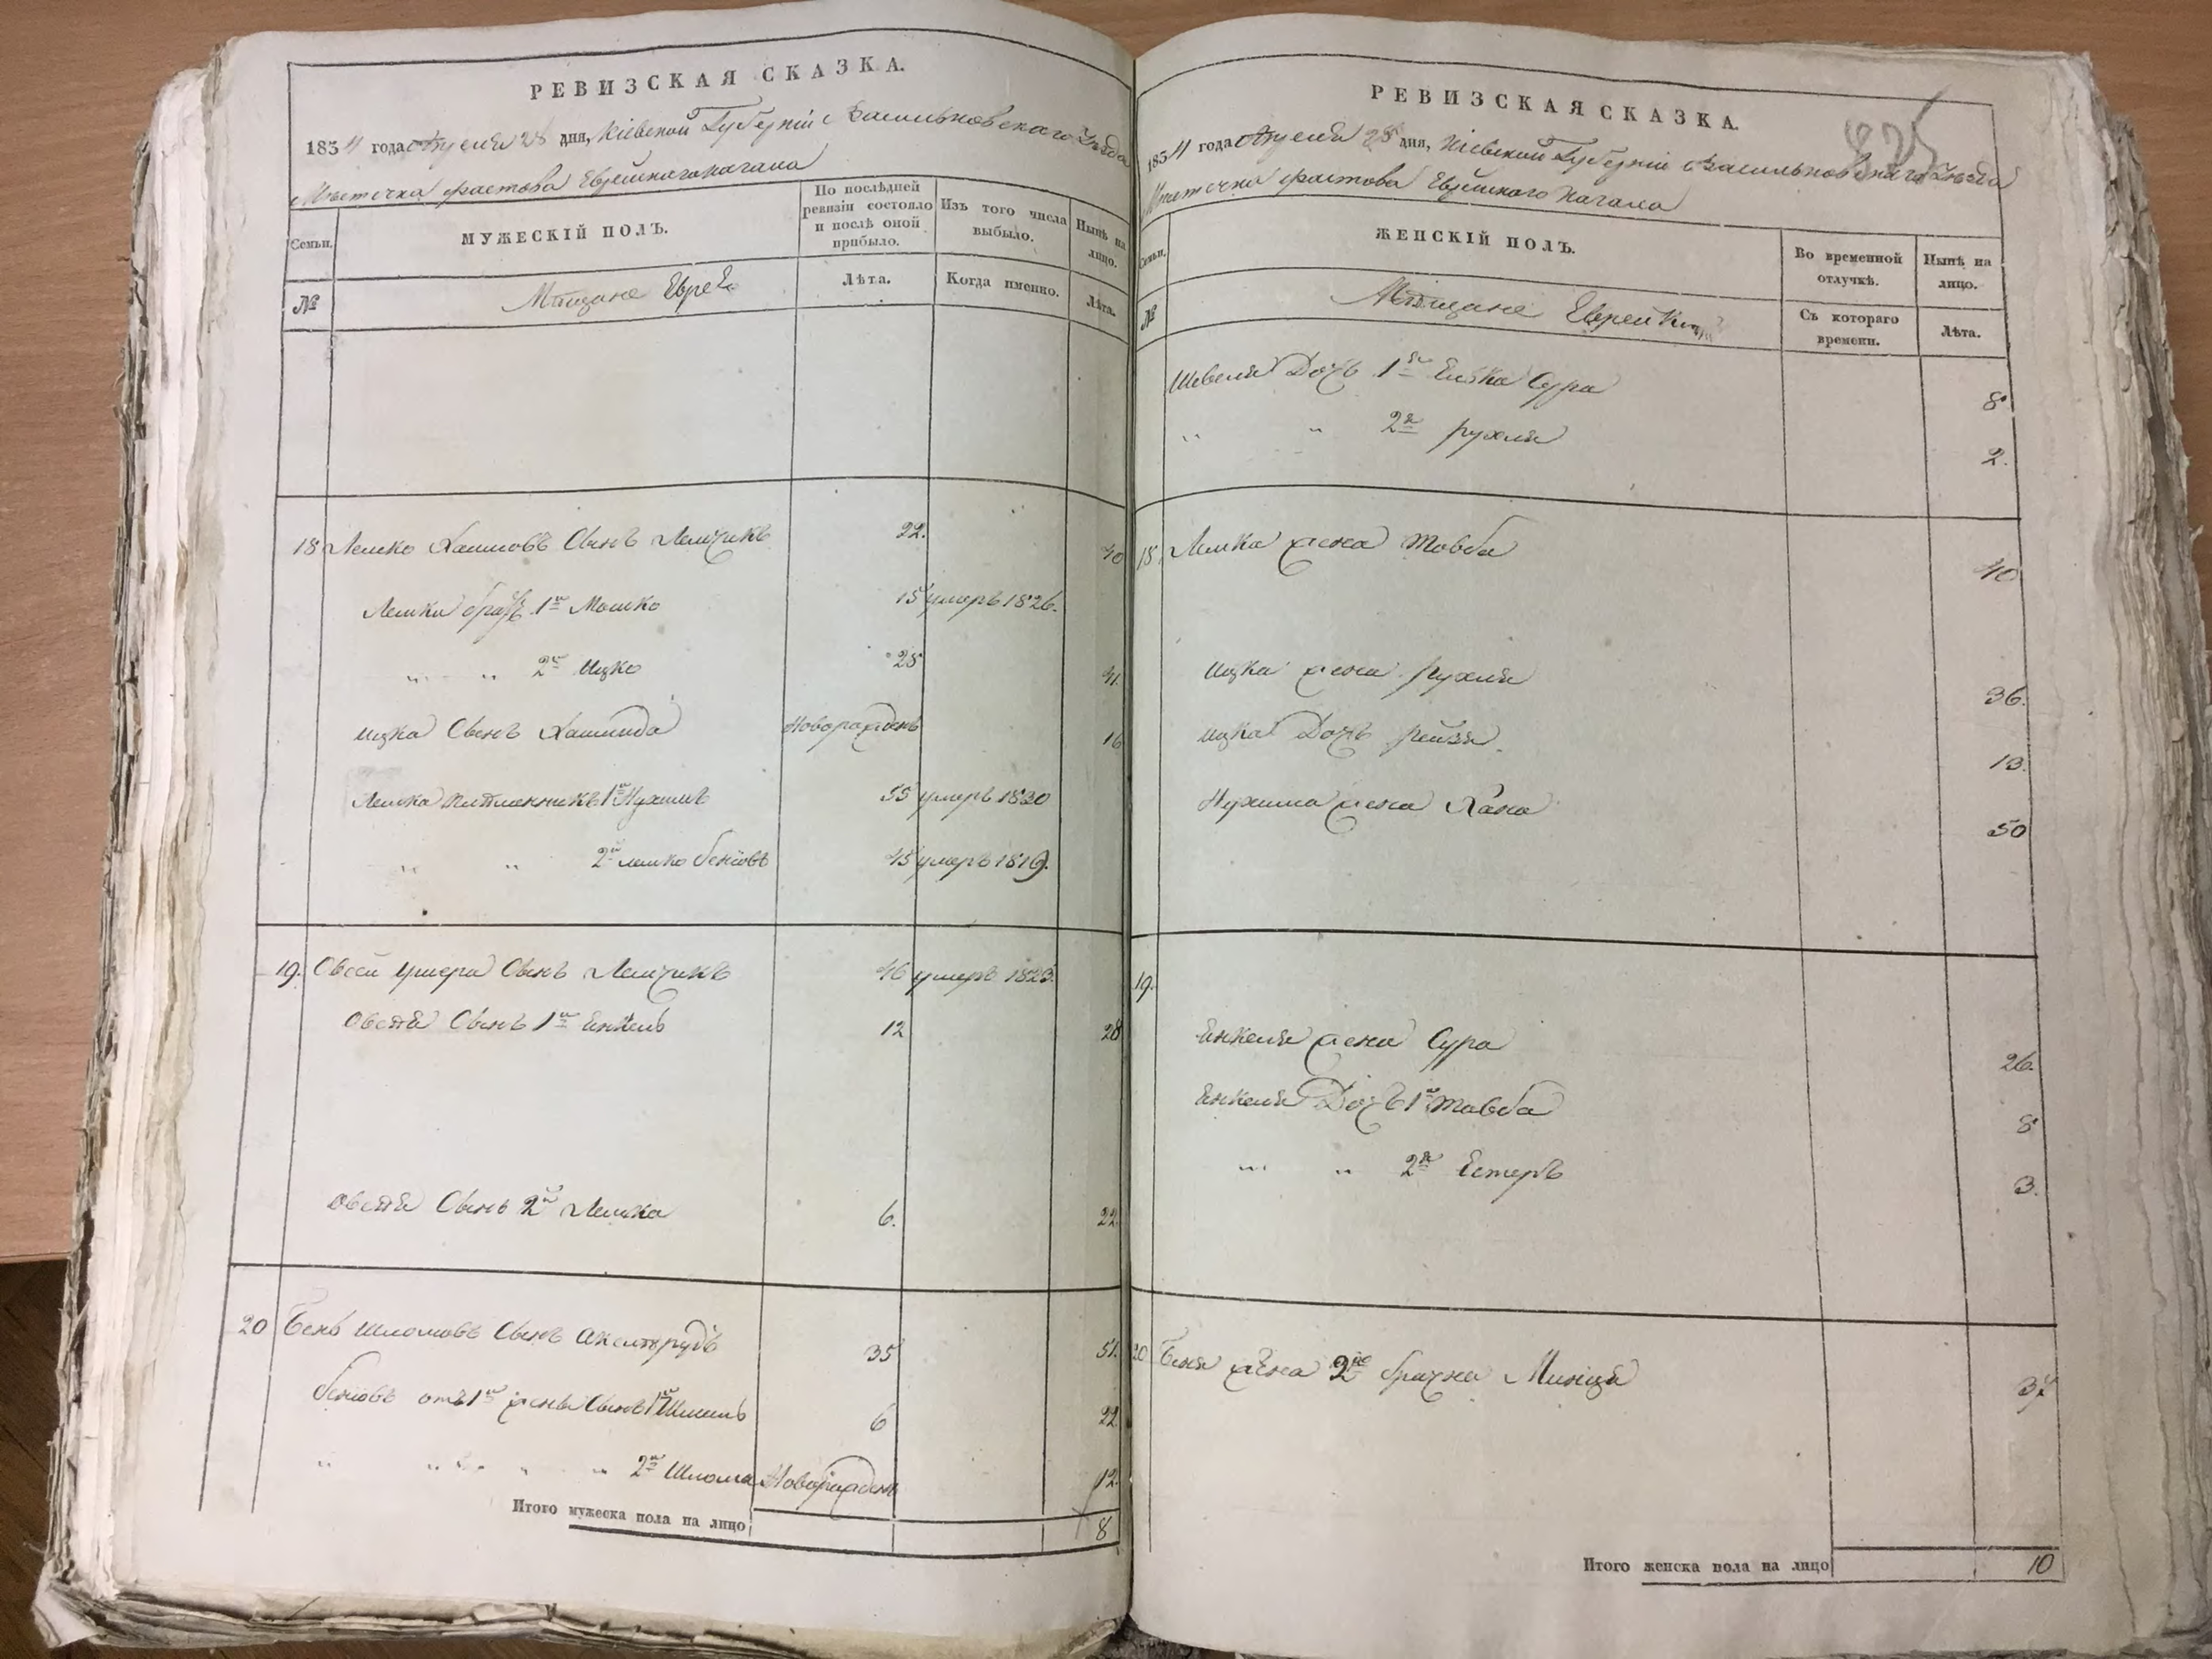 РЕВИЗСКАЯ СКАЗКА.
1834 года Апреля 28 дня, Кіевской Губерніи Васильковскаго Уезда
Местечка Фастова Еврейскаго кагала
Семьи.
МУЖЕСКІЙ ПОЛЪ.
По послѣдней ревизіи состояло и послѣ оной прибыло.
Изъ того числа выбыло.
Нынѣ на лицо.
№
Мещане Евреи
Лѣта.
Когда именно.
Лѣта.
18 Лешко Хаимовъ Сынъ Лемчикъ 22. 40
Лешки братъ 1й Мошко 15 умеръ 1826.
„ „ 2й Ицко 25 41.
Ицка Сынъ Хаим Новорожденъ 16
Лешка племянникъ 1й Нухимъ 55 умеръ 1830
„ „ 2й Лешко беніовъ 45 умеръ 1819.
19. Овсей Умера Сынъ Лемчикъ 46 умеръ 1823.
Овсея Сынъ 1й Енкель 12 28
Овсея Сынъ 2й Лешка 6. 22.
20 Бень Шломовъ Сынъ 35 51.
беніовъ отъ 1й жены Сынъ 1й 6 22
„ „ „ „ 2й Шлома Новорожденъ 12.
Итого мужеска пола на лицо 8
РЕВИЗСКАЯ СКАЗКА.
1834 года Апреля 28 дня, Кіевской Губерніи Васильковскаго Уезда
Местечка Фастова Еврейскаго Кагала
Семьи.
ЖЕНСКІЙ ПОЛЪ.
Во временной отлучкѣ.
Нынѣ на лицо.
№
Мещане Еврейки
Съ котораго времени.
Лѣта.
Дочь 1я Сура 8
„ „ 2я Рухля 2.
18. Лешка жена Товба 40
Ицка жена Рухля 36.
Ицка Дочь Рейзя 13.
Нухима жена Хана 50
19.
Енкеля жена Сура 26.
Енкеля Дочь 1я Товба 8
„ „ 2я Естеръ 3.
20 Беня жена 2го брачна 37
Итого женска пола на лицо 10